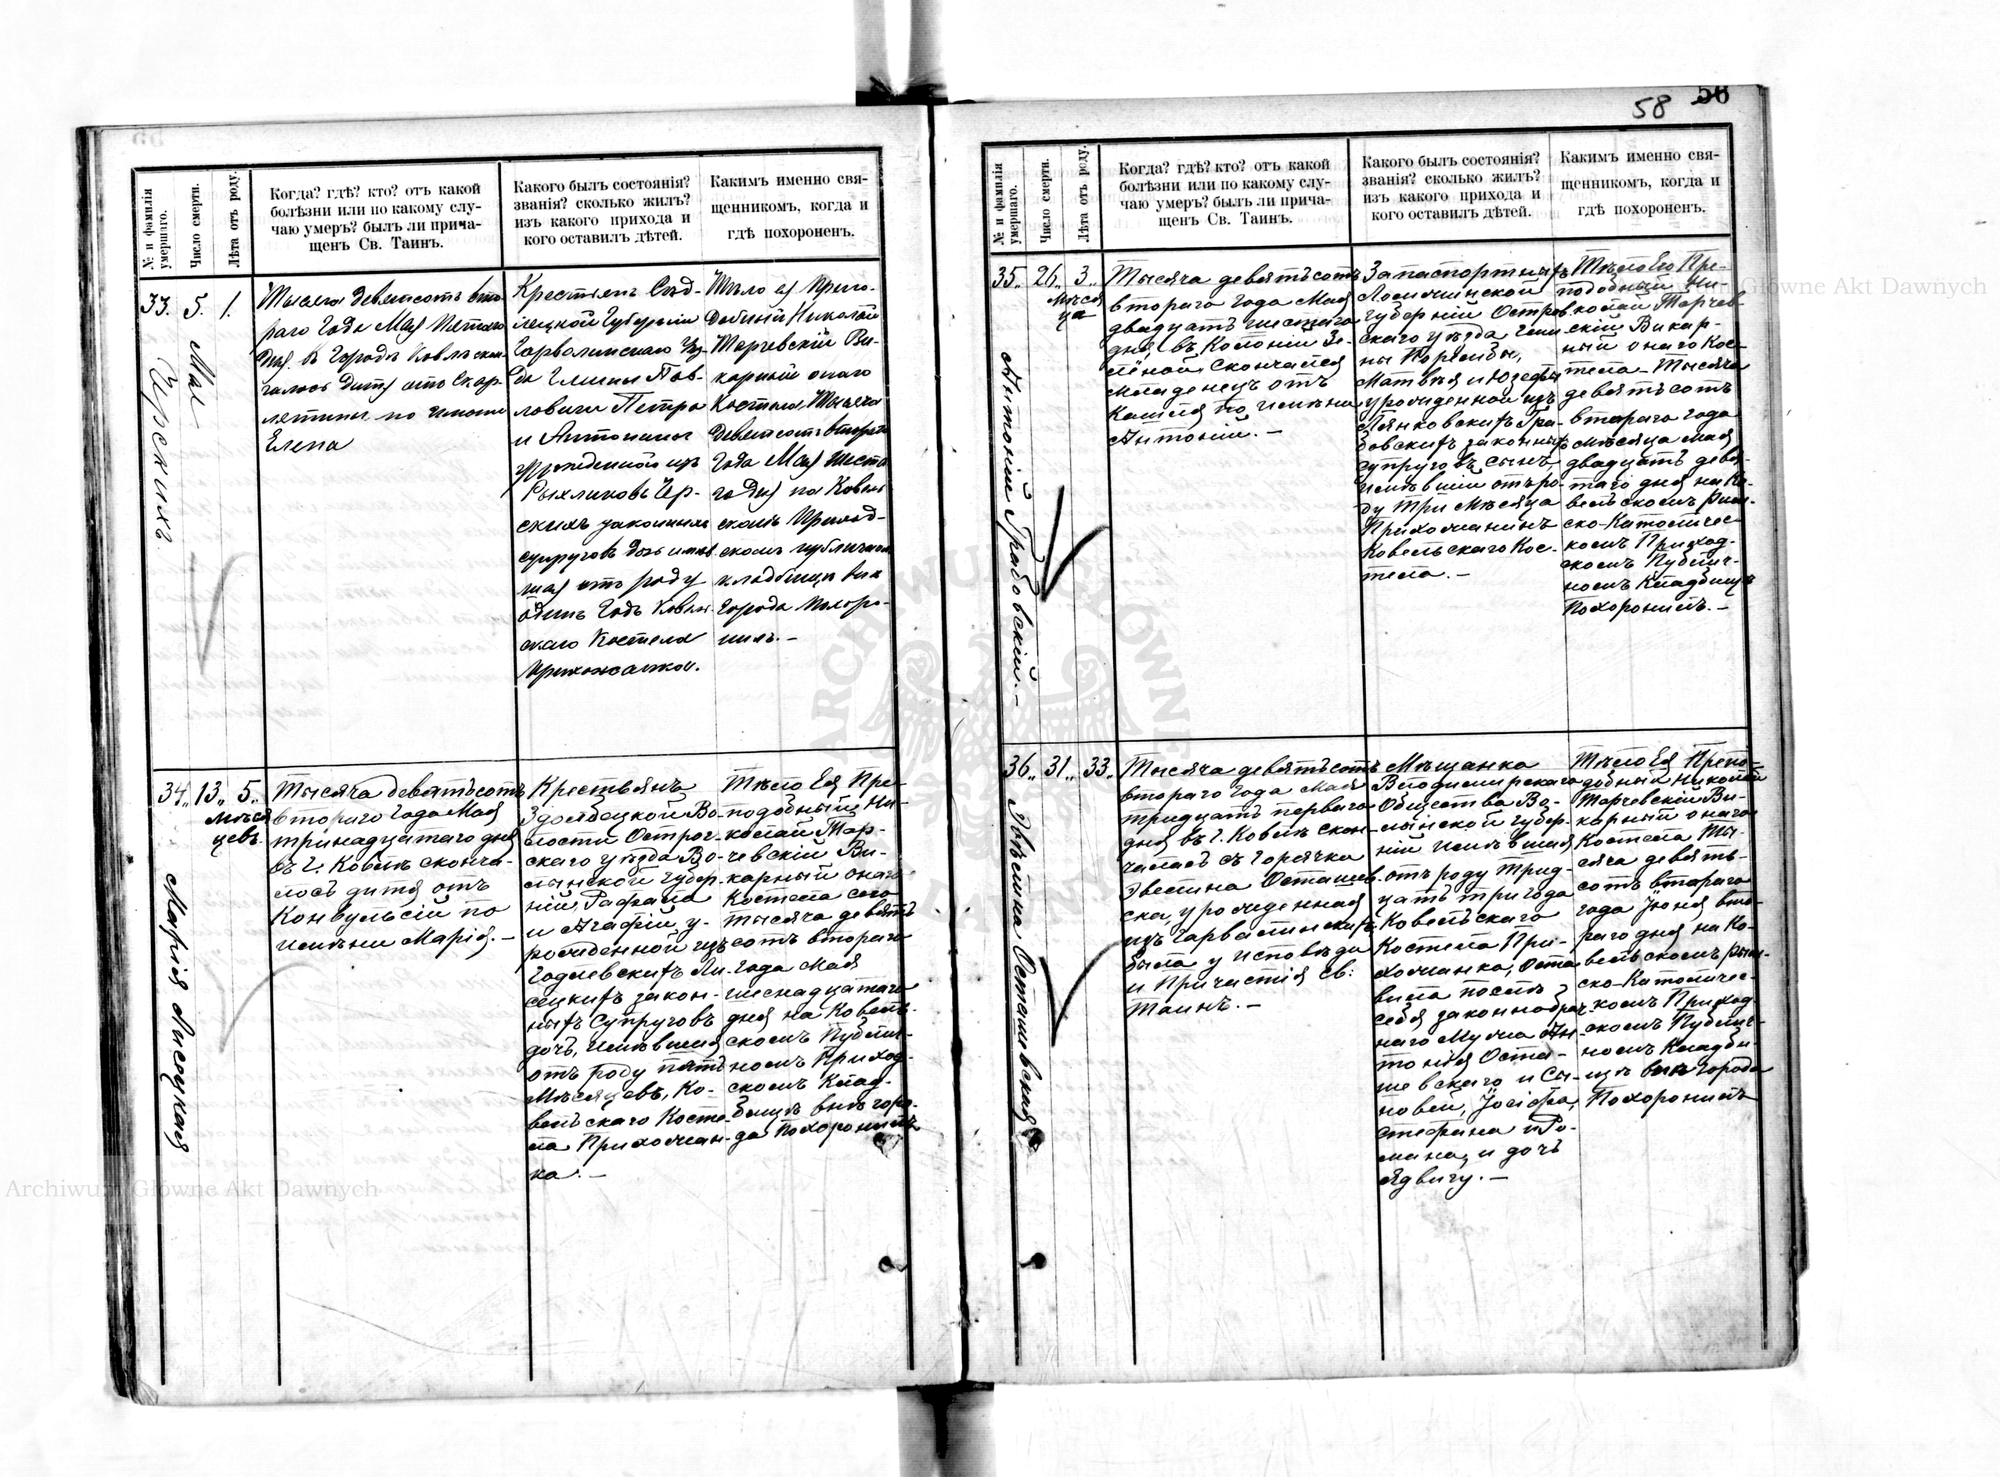 58 56
№ и фамилія умершаго.
Число смерти.
Лѣта отъ роду.
Когда? гдѣ? кто? отъ какой
болѣзни или по какому слу-
чаю умеръ? былъ ли прича-
щенъ Св. Таинъ.
Какого былъ состоянія?
званія? сколько жилъ?
изъ какого прихода и
кого оставилъ дѣтей.
Какимъ именно свя-
щенникомъ, когда и
гдѣ похороненъ.
33.
5.
Мая
1.
Тысяча девятсотъ вто-
раго Года Мая Пятаго
дня въ Городѣ Ковлѣ скон-
чалось дитя отъ Скар-
лятины по имени
Елена
Крестьянъ Сѣд-
лецкой Губерніи
Гарволинскаго Уѣз-
да Гмины Пав-
ловичи Петра
и Антонины
урожденной изъ
Рыхликовъ Чер-
скихъ законныхъ
супруговъ дочь имѣв-
шая отъ роду
одинъ Годъ Ковел-
скаго Костела
прихожанка.
Тѣло ея Препо-
добный Николай
Тарчевскій Ви-
карный онаго
Костела Тысяча
девятсотъ втораго
Года Мая шеста-
го дня на Ковель-
скомъ Приход-
скомъ публичномъ
кладбищѣ внѣ
города похоро-
нилъ.–
34.
13.
5.
мѣся
цевъ.
Марія Лисецкая
Тысяча девятьсотъ
втораго Года Мая
тринадцатаго дня
въ г. Ковлѣ сконча-
лось дитя отъ
Конвульсій по
имѣни Марія.–
Крестьянъ
Здолбецкой Во-
лости Острог-
скаго уѣзда Во-
лынской губер-
ній, Рафаила
и Агафіи, у-
рожденной изъ
Годлевскихъ Ли-
сецкихъ закон-
ныхъ Супруговъ
дочь, имѣвшая
отъ роду пять
Мѣсяцевъ, Ко-
вельскаго Косте-
ла Прихожан-
ка.–
Тѣло Ея Пре-
подобный Ни-
колай Тар-
чевскій Ви-
карный онаго
Костела сего
тысяча девять
сотъ втораго
года Мая
шеснадцатаго
дня на Ковель-
скомъ Публич-
номъ Приход-
скомъ Клад-
бищѣ внѣ горо-
да Похоронилъ
№ и фамилія умершаго.
Число смерти.
Лѣта отъ роду.
Когда? гдѣ? кто? отъ какой
болѣзни или по какому слу-
чаю умеръ? былъ ли прича-
щенъ Св. Таинъ.
Какого былъ состоянія?
званія? сколько жилъ?
изъ какого прихода и
кого оставилъ дѣтей.
Какимъ именно свя-
щенникомъ, когда и
гдѣ похороненъ.
35.
26.
3.
мѣся
ца
Антоній Грабовскій.–
Тысяча девятьсотъ
втораго Года Мая
двадцать шестаго
дня, въ Колоніи Зе-
лёной Скончался
младенецъ отъ
Кашля по имѣни
Антоній.–
Запаспортныхъ
Ломжинской
губерній Остров-
скаго уѣзда Гми-
ны
Матвѣя и Юзефы
урожденной изъ
Пянковскихъ Гра-
бовскихъ законныхъ
супруговъ сынъ,
имѣвшій отъ ро-
ду три Мѣсяца
Прихожанинъ
Ковельскаго Кос-
тела.–
Тѣло Его Пре-
подобный Ни-
колай Тарчев-
скій Викар-
ный онаго Кос-
тела Тысяча
девятьсотъ
втораго года
Мѣсяца Мая
двадцать девя-
таго дня на Ко-
вельскомъ Рим-
ско-Католичес-
комъ Приход-
скомъ Публич-
номъ Кладбищѣ
Похоронилъ.–
36.
31.
33.
Эвелина Осташевская
Тысяча девятьсотъ
втораго Года Мая
тридцать перваго
дня въ г. Ковлѣ скон-
чалась съ Горячки
Эвелина Осташев-
ска, урожденная
изъ Гарвалинскихъ
была у исповѣда
и Причастія Св:
Таинъ.–
Мѣщанка
Владимирскаго
Общества Во-
лынской губер-
ній имѣвшая
отъ роду Трид-
цать три года
Ковельскаго
Костела При-
хожанка, Оста
вила послѣ
себя законнобрач-
наго Мужа Ан-
тонія Оста-
шевскаго и Сы-
новей, Іосифа,
Стефана и Ро-
мана, и дочь
Ядвигу.–
Тѣло Ея Препо-
добный Николай
Тарчевскій Ви-
карный онаго
Костела Ты-
сяча девять-
сотъ втораго
года Іюня вто-
раго дня на Ко-
вельскомъ Рим-
ско-Католичес-
комъ Приход-
скомъ Публич-
номъ Кладби-
щѣ внѣ города
Похоронилъ
Archiwum Główne Akt Dawnych
Archiwum Główne Akt Dawnych